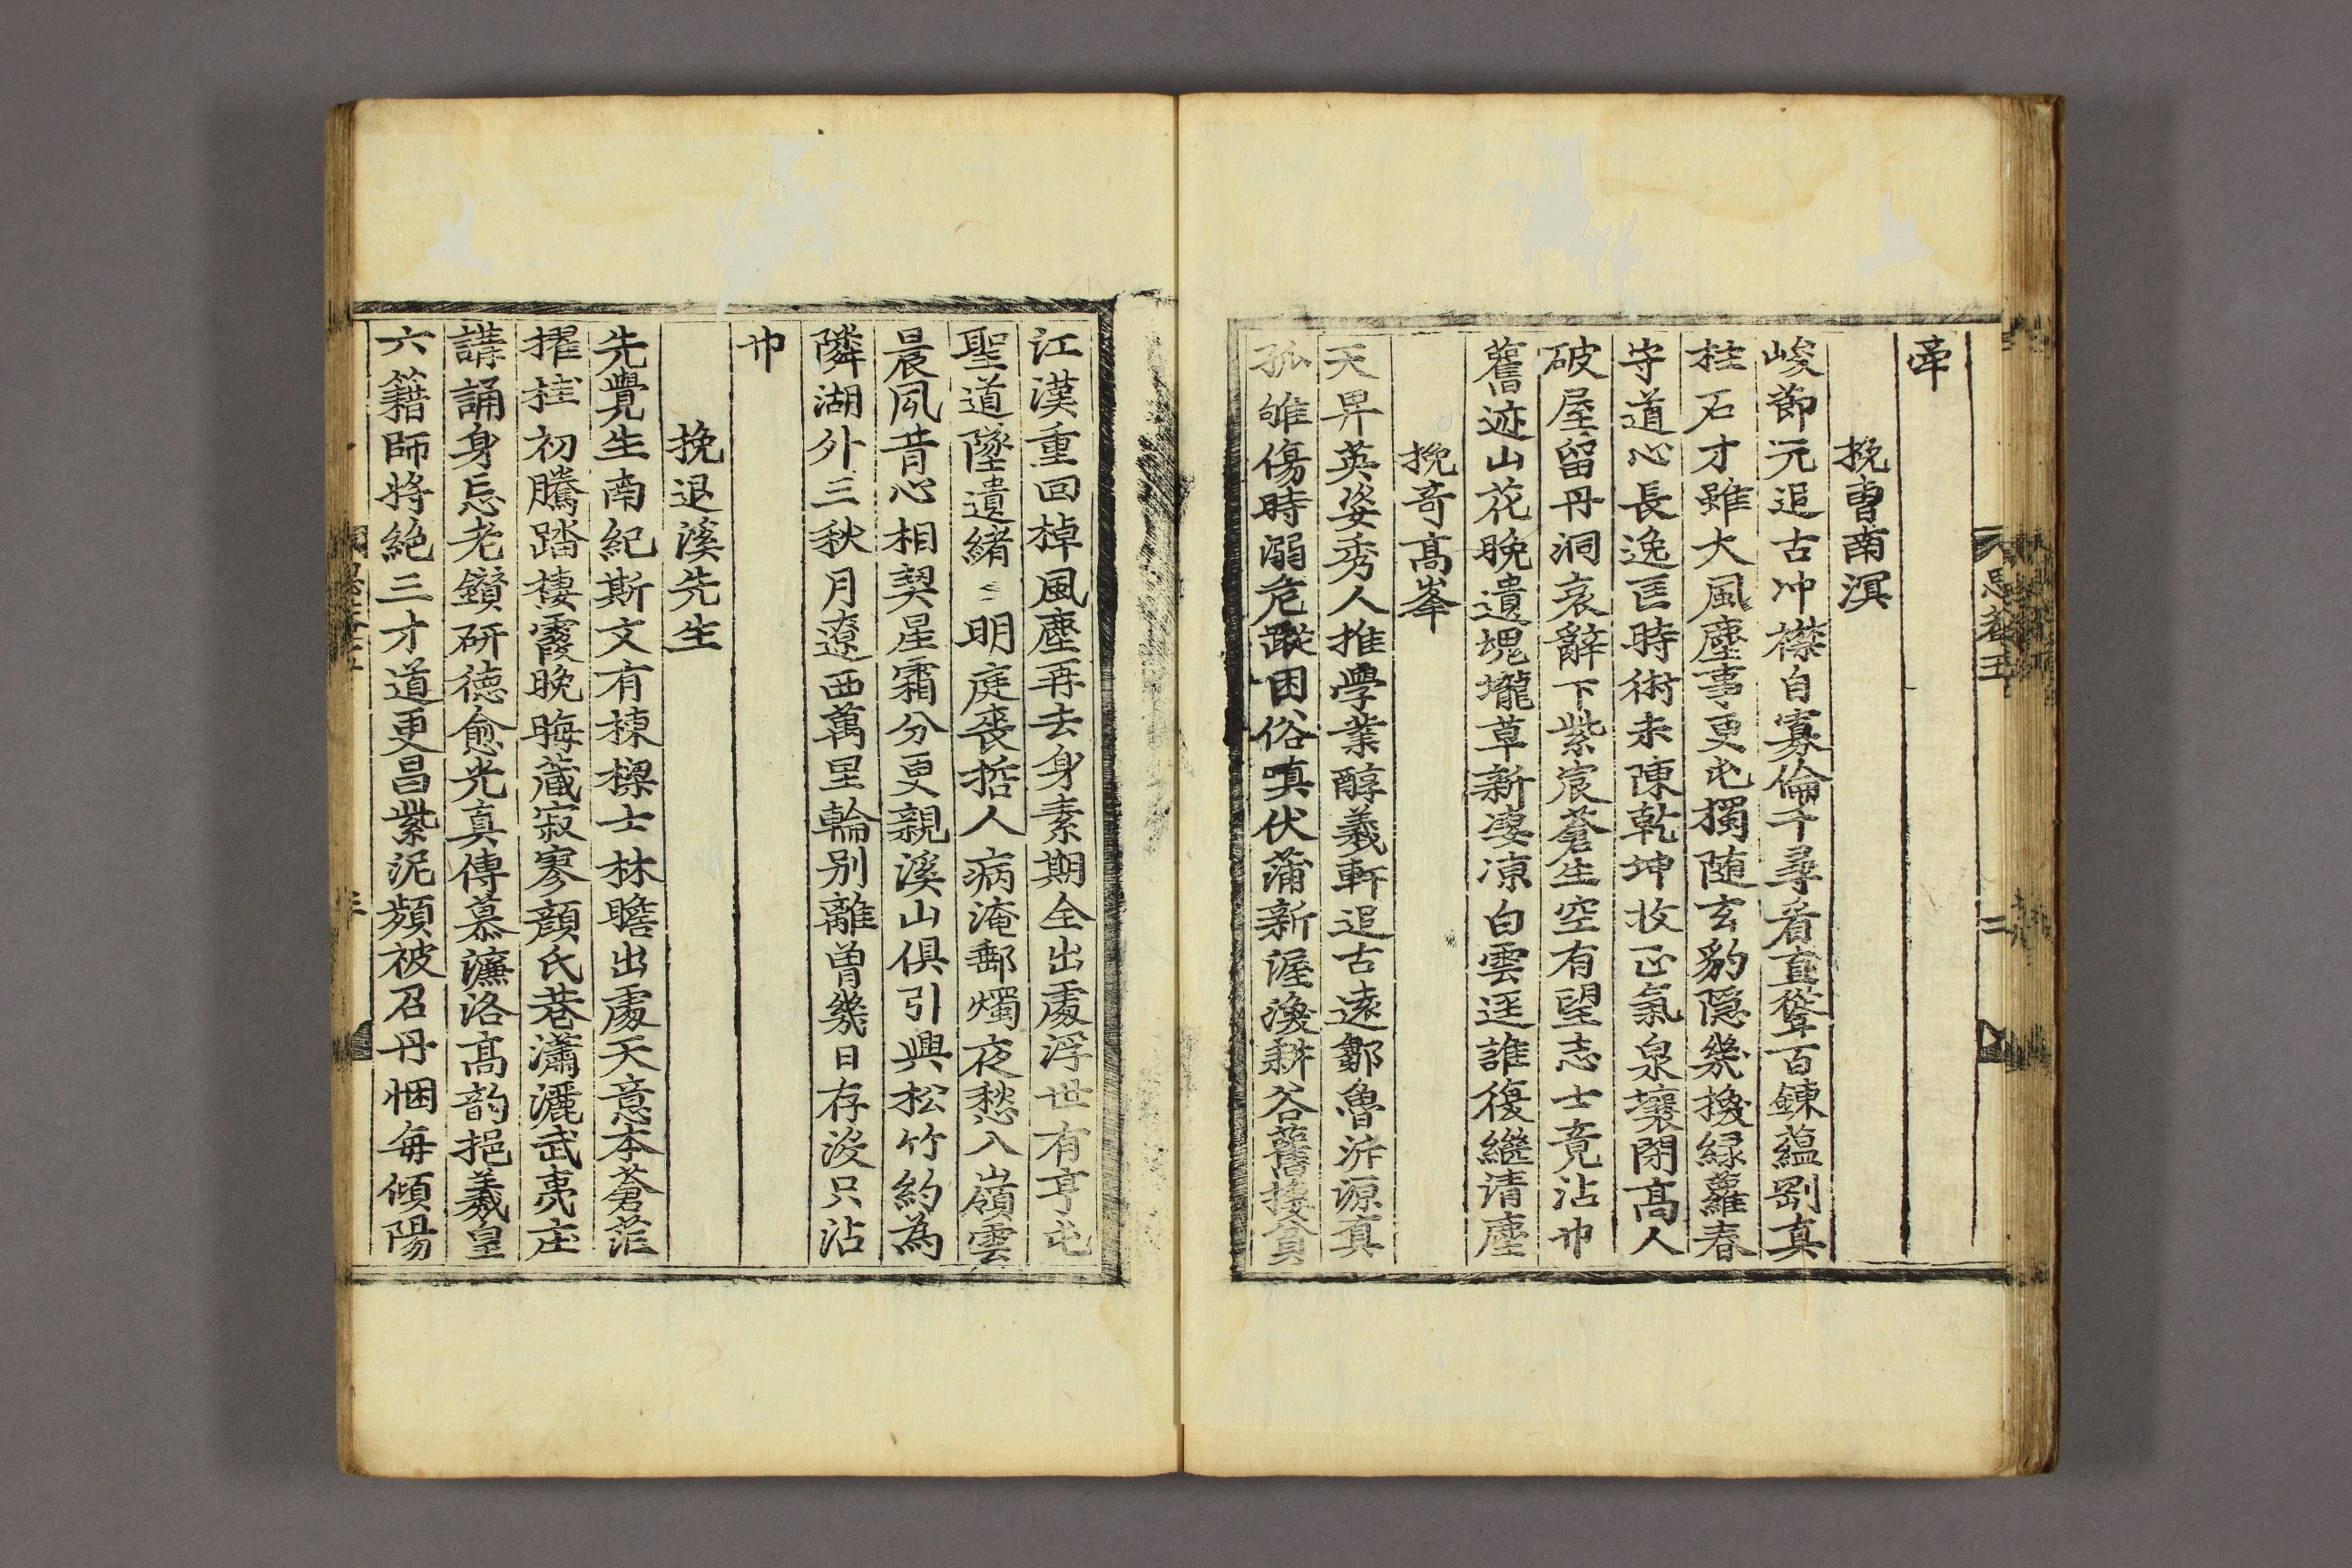 牽
挽曺南溟
峻節元追古冲襟自寡倫千尋看直聳百鍊蘊剛真
柱石才雖大風塵事更屯獨随玄豹隠幾換緑蘿春
守道心長逸匡時術未陳乾坤收正氣泉壤閉高人
破屋留丹洞哀辭下紫宸蒼生空有望志士竟沾巾
舊迹山花晚遺塊壠草新凄凉白雲逕誰復繼清塵
挽奇高峯
天昇英姿秀人推學業醇羲軒追古遠鄒魯泝源真
孤雊傷時溺危蹤困俗嗔伏蒲新渥渙耕谷舊捿貧
江漢重回棹風塵再去身素期全出處浮世有亨屯
聖道墬遺緖〻明庭喪哲人病淹郵燭夜愁入嶺雲
晨夙昔心相契星霜分更親溪山俱引興松竹約為
隣湖外三秋月遼西萬里輪别離曽幾日存沒只沾
巾
挽退溪先生
先覺生南紀斯文有棟樑士林瞻出處天意本蒼茫
擢桂初騰踏棲霞晚晦藏寂寥顔氏巷瀟灑武夷庄
講誦身忘老鑽研徳愈光真傳慕濂洛高韵挹羲皇
六籍師将絶三才道更昌紫泥頻被召丹悃每傾陽
思菴五
二
三